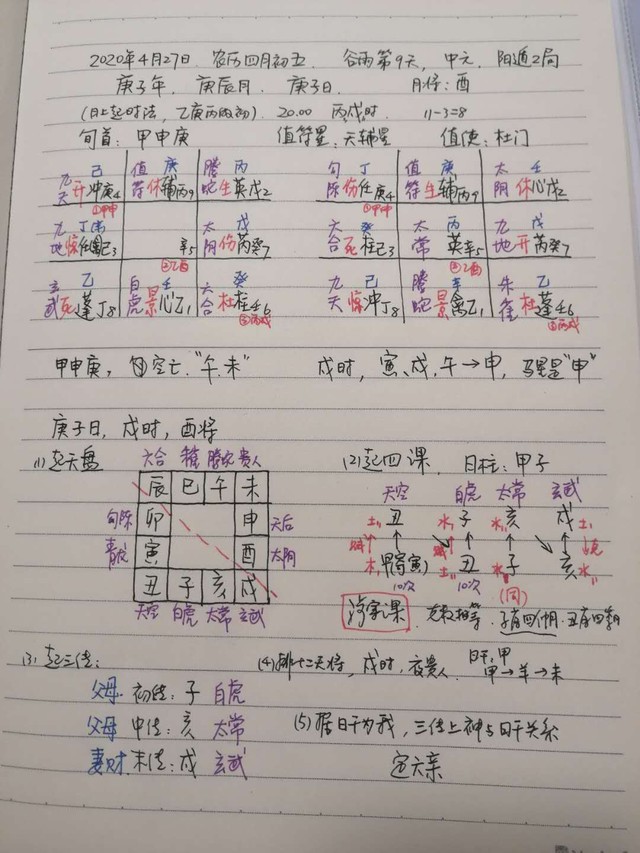 2020年4月27日 农历四月初五 谷雨第9天, 中元, 阳遁2局
庚子年, 庚辰月, 庚子日. 月将: 酉
(日上起时法, 乙庚丙内初) 20.00 丙戌时. 11-3=8
旬首: 甲申庚 值符星: 天辅星 值使: 杜门
九天 己 开冲庚4 ①甲申
值符 庚 休辅丙9
腾蛇 丙 生英戊2
九地 丁 惊任己3
辛5
太阴 戊 伤芮癸7
玄武 乙 死蓬丁8
白虎 壬 景心乙1 ②乙酉
六合 癸 杜柱壬6 ③丙戌
勾陈 丁 伤任庚4 ①甲申
值符 庚 生辅丙9
太阴 壬 休心戊2
六合 癸 死柱己3
太常 丙 英辛5
九地 戊 开芮癸7
九天 己 惊冲丁8
腾蛇 辛 景禽乙1 ②乙酉
朱雀 乙 杜蓬壬6 ③丙戌
甲申庚, 空亡: "午.未" 戌时, 寅、戌、午→申, 马星是"申"
庚子日, 戌时, 酉将
(1) 起天盘
六合 腾蛇 贵人
辰 巳 午 未
勾陈 卯 申 天后
青龙 寅 酉 太阴
丑 子 亥 戌
天空 白虎 太常 玄武
(2) 起四课 日柱: 甲子
天空 白虎 太常 玄武
土 丑 水 子 水 亥 戌 土
木 甲(寅) 土 丑 水 子 亥 水
10次 10次 (阳)
涉害课 克数相等. 子有四仲, 丑有四季
(3) 起三传:
父母. 初传: 子 白虎
父母 中传: 亥 太常
妻财 末传: 戌 玄武
(4) 排十二天将, 戌时, 夜贵人 日干: 甲
甲→羊→未
(5) 据日干为我, 三传上神与日干关系
定六亲